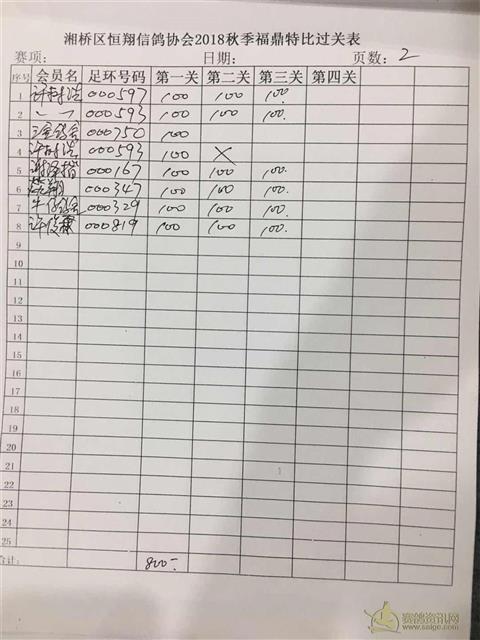 湘桥区恒翔信鸽协会2018秋季福鼎特比过关表
赛项： 日期： 页数：2
序号 会员名 足环号码 第一关 第二关 第三关 第四关
1 000597 100 100 100.
2 000593 100 100 100.
3 000750 100
4 000593 100 X
5 000167 100 100 100.
6 000347 100 100 100.
7 000329 100 100 100.
8 000819 100 100 100.
9
10
11
12
13
14
15
16
17
18
19
20
21
22
23
24
25
合计： 800
赛鸽资讯网
www.saige.com